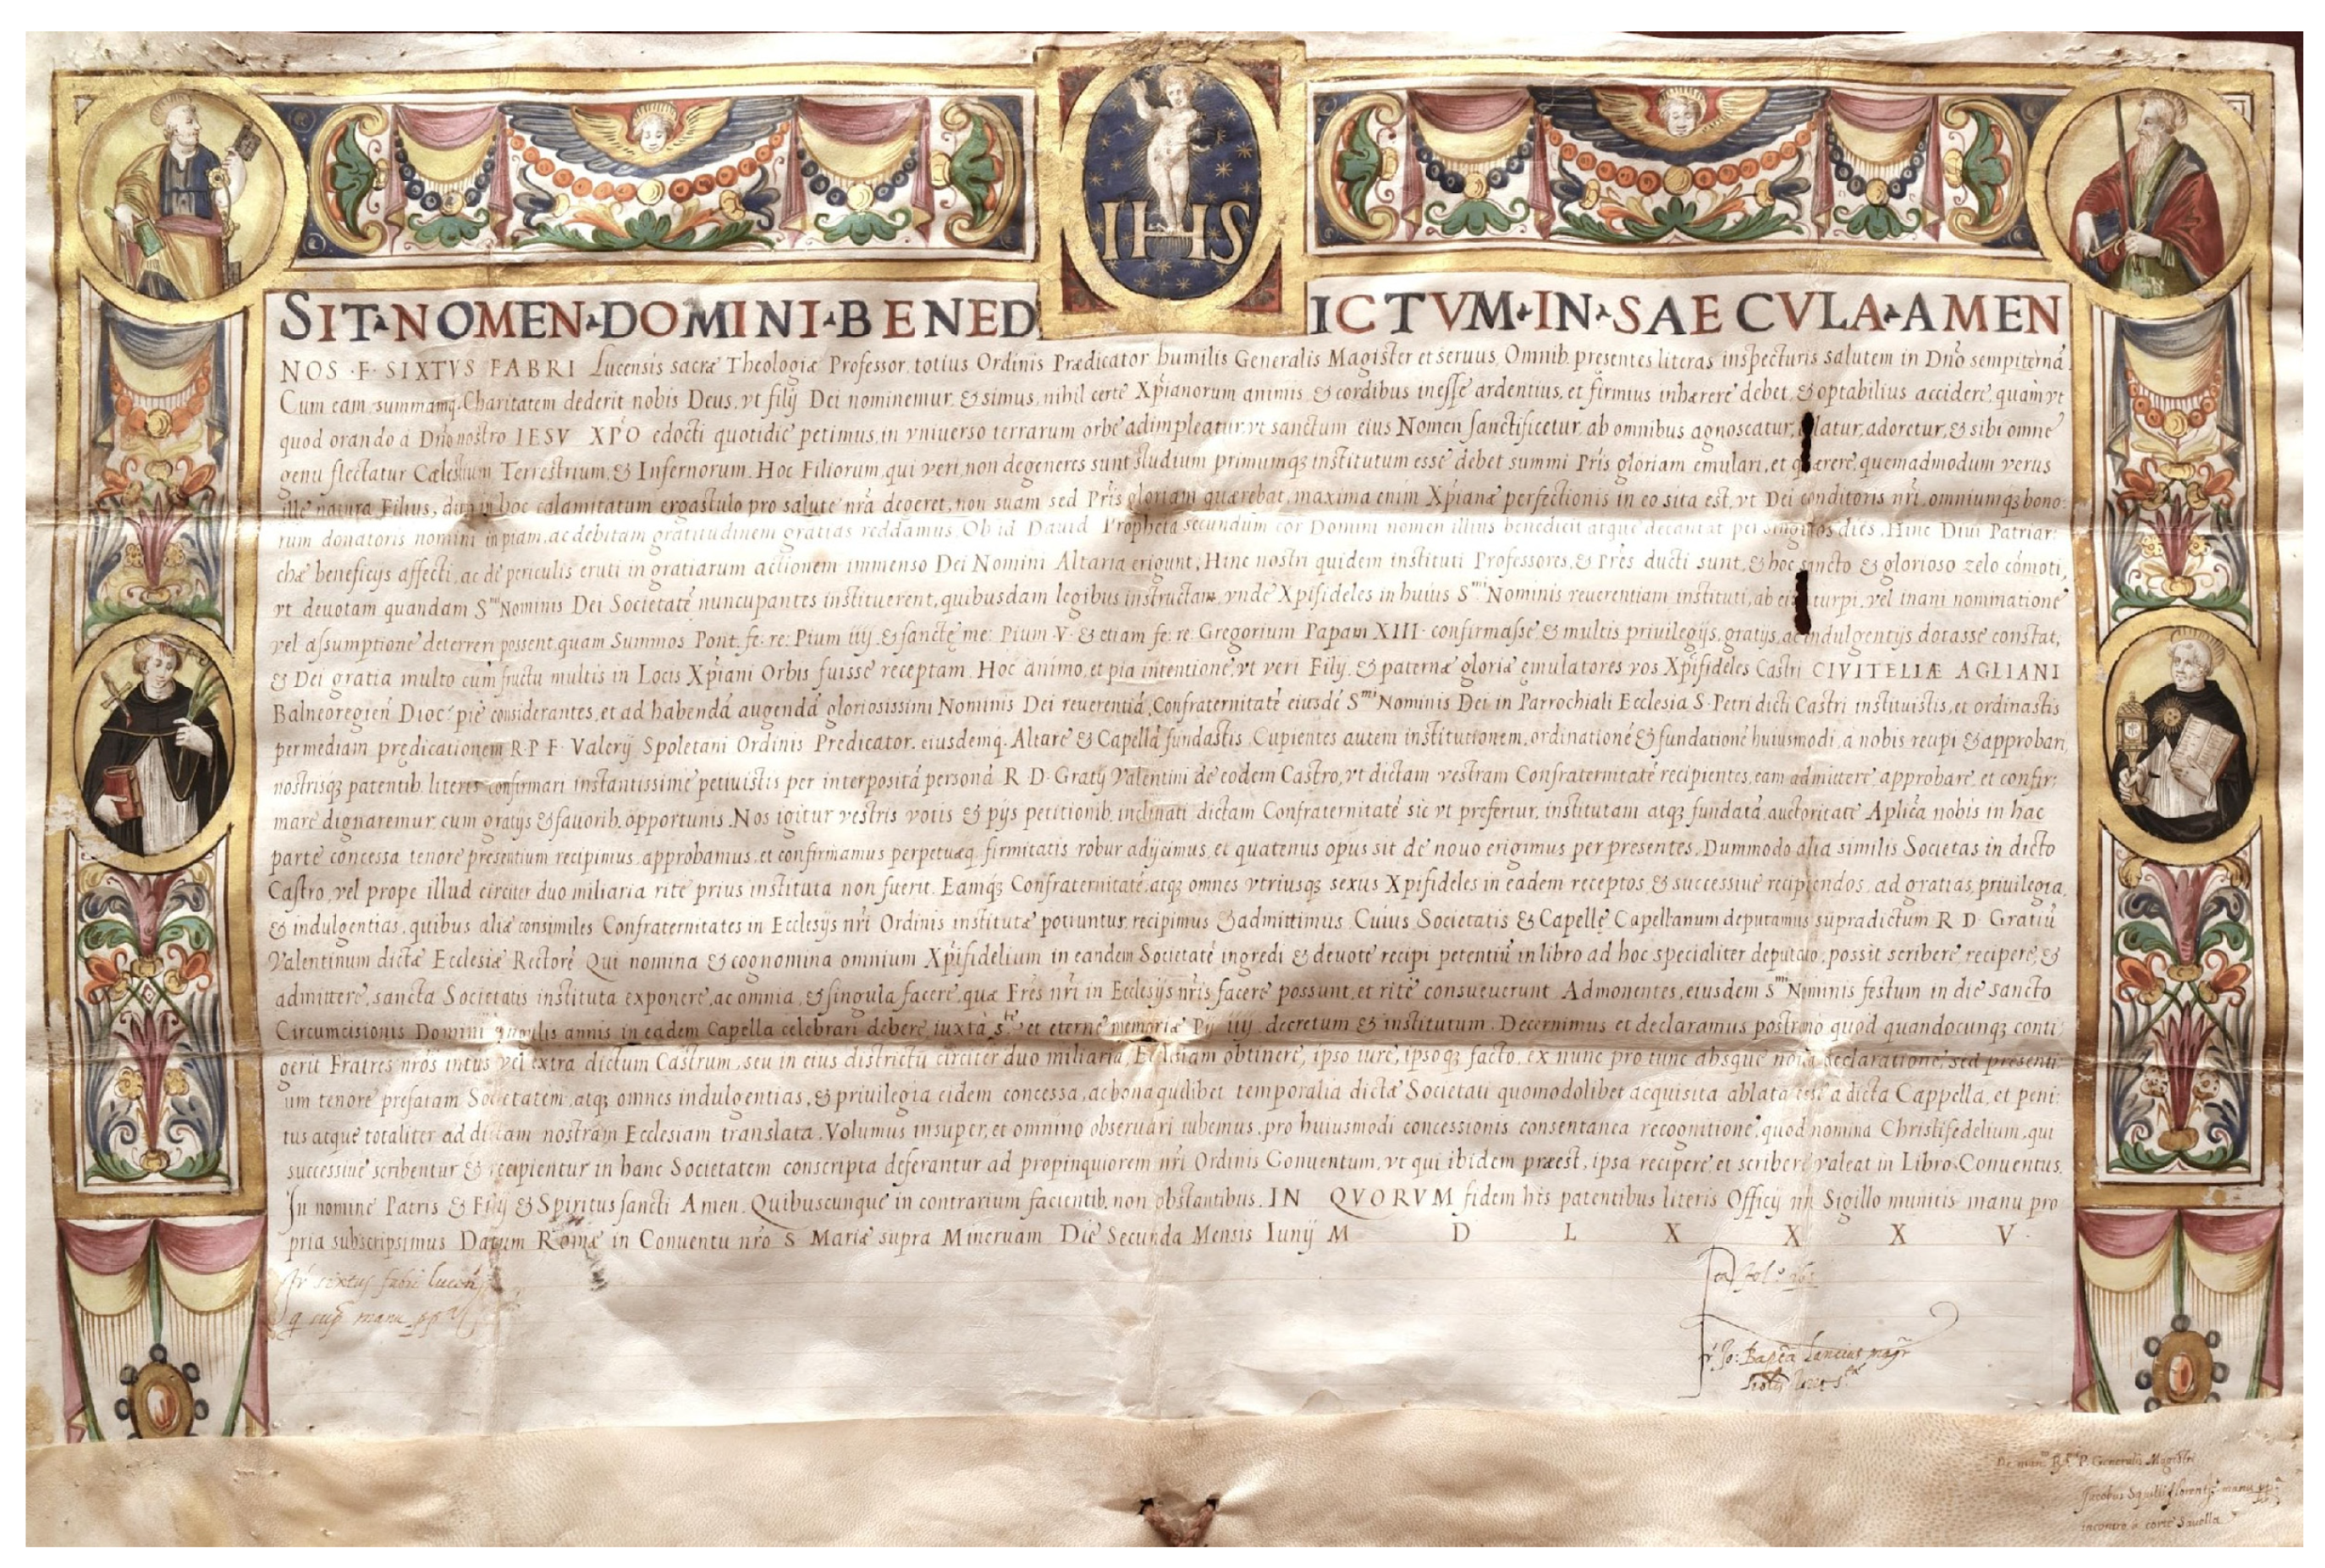 IHS
SIT NOMEN DOMINI BENEDICTVM IN SAECVLA AMEN
NOS F. SIXTVS FABRI Lucensis sacræ Theologiæ Professor totius Ordinis Prædicator humilis Generalis Magister et seruus, Omnib. presentes literas inspecturis salutem in Dño sempiternã.
Cum eam summamq. Charitatem dederit nobis Deus, vt filij Dei nominemur, & simus, nihil certe Xp̃ianorum animis, & cordibus inesse ardentius, et firmius inhærere debet, & optabilius accidere, quàm vt
quod orando à Dño nostro IESV XP̃O edocti quotidie petimus, in vniuerso terrarum orbe adimpleatur, vt sanctum eius Nomen sanctificetur, ab omnibus agnoscatur, latur, adoretur, & sibi omne
genu flectatur Cælestium Terrestrium, & Infernorum. Hoc Filiorum, qui veri, non degeneres sunt studium primumq; institutum esse debet summi Pr̃is gloriam emulari, et quærere, quemadmodum verus
ille natura Filius, dum in hoc calamitatum ergastulo pro salute nr̃a degeret, non suam sed Pr̃is gloriam quærebat, maxima enim Xp̃ianæ perfectionis in eo sita est, vt Dei conditoris nr̃i, omniumq; bono:
rum donatoris nomini in piam, ac debitam gratitudinem gratias reddamus. Ob id Dauid Propheta secundum cor Domini nomen illius benedicit atque decantat per singulos dies. Hinc Diui Patriar:
chæ beneficijs affecti, ac de periculis eruti in gratiarum actionem immenso Dei Nomini Altaria erigunt, Hinc nostri quidem instituti Professores, & Pr̃es ducti sunt, & hoc sancto & glorioso zelo cõmoti,
vt deuotam quandam Smi Nominis Dei Societatẽ nuncupantes instituerent, quibusdam legibus instructam, vnde Xpifideles in huius Smi Nominis reuerentiam instituti, ab eius turpi, vel inani nominatione
vel assumptione deterreri possent, quam Summos Pont. fe: re: Pium iiij. & sanctę me: Pium V. & etiam fe: re: Gregorium Papam XIII. confirmasse & multis priuilegijs, gratijs, ac indulgentijs dotasse constat,
& Dei gratia multo cum fructu multis in Locis Xp̃iani Orbis fuisse receptam. Hoc animo, et pia intentione, vt veri Filij, & paternæ gloriæ ęmulatores vos Xp̃ifideles Castri CIVITELLÆ AGLIANI
Balneoregieñ Dioc. pie considerantes, et ad habendã augendã gloriosissimi Nominis Dei reuerentiã, Confraternitatẽ eiusdẽ Smi Nominis Dei in Parrochiali Ecclesia S. Petri dicti Castri instituistis, et ordinastis
per mediam prędicationem R. P. F. Valerij Spoletani Ordinis Predicator. eiusdemq. Altare & Capellã fundastis. Cupientes autem institutionem, ordinationẽ & fundationẽ huiusmodi, a nobis recipi & approbari,
nostrisq; patentib. literis confirmari instantissime petiuistis per interpositã personã R. D. Gratij Valentini de eodem Castro, vt dictam vestram Confraternitatẽ recipientes, eam admittere, approbare, et confir:
mare dignaremur cum gratijs & fauorib. opportunis. Nos igitur vestris votis & pijs petitionib. inclinati dictam Confraternitatẽ sic vt prefertur, institutam atq; fundatã, auctoritate Aplica nobis in hac
parte concessa tenore presentium recipimus, approbamus, et confirmamus perpetuæq. firmitatis robur adijcimus, et quatenus opus sit de nouo erigimus per presentes, Dummodo alia similis Societas in dicto
Castro, vel prope illud circiter duo miliaria rite prius instituta non fuerit. Eamq; Confraternitatẽ, atq; omnes vtriusq; sexus Xpifideles in eadem receptos & successiue recipiendos, ad gratias, priuilegia,
& indulgentias, quibus aliæ consimiles Confraternitates in Ecclesijs nr̃i Ordinis institutæ potiuntur, recipimus & admittimus. Cuius Societatis & Capellę Capellanum deputamus supradictum R D. Gratiũ
Valentinum dictæ Ecclesiæ Rectorẽ Qui nomina & cognomina omnium Xp̃ifidelium in eandem Societatẽ ingredi & deuote recipi petentiũ in libro ad hoc specialiter deputato, possit scribere, recipere, &
admittere, sancta Societatis instituta exponere, ac omnia, & singula facere, quæ Fr̃es nr̃i in Ecclesijs nr̃is facere possunt, et rite consueuerunt Admonentes, eiusdem Smi Nominis festum in die sancto
Circumcisionis Domini singulis annis in eadem Capella celebrari debere, iuxta et eternę memoriæ Pij iiij. decretum & institutum. Decernimus et declaramus postremo, quod quandocunq; conti
gerit Fratres nr̃os intus vel extra dictum Castrum, seu in eius districtu circiter duo miliaria, Ecclesiam obtinere, ipso iure, ipsoq; facto, ex nunc pro tunc absque noua declaratione, sed presenti:
um tenore prefatam Societatem, atq; omnes indulgentias, & priuilegia eidem concessa, ac bona quælibet temporalia dictæ Societati quomodolibet acquisita ablata esse a dicta Cappella, et peni:
tus atque totaliter ad dictam nostram Ecclesiam translata. Volumus insuper, et omnino obseruari iubemus, pro huiusmodi concessionis consentanea recognitione, quod nomina Christifidelium, qui
successiue scribentur & recipientur in hanc Societatem conscripta deferantur ad propinquiorem nr̃i Ordinis Conuentum, vt qui ibidem præest, ipsa recipere, et scribere valeat in Libro Conuentus.
In nomine Patris & Filij & Spiritus sancti Amen. Quibuscunque in contrarium facientib. non obstantibus. IN QVORVM fidem his patentibus literis Officij nr̃i Sigillo munitis manu pro
pria subscripsimus Datum Romæ in Conuentu nr̃o S. Mariæ supra Mineruam Die Secunda Mensis Iunij M D L X X X V.
fr sixtus fabri lucen̄
manu
fol.
fr Jo: Bapta Lancius magr
P. Generalis Magistri
Jacobus Squilli florent. manu
incontro a corte Sauella